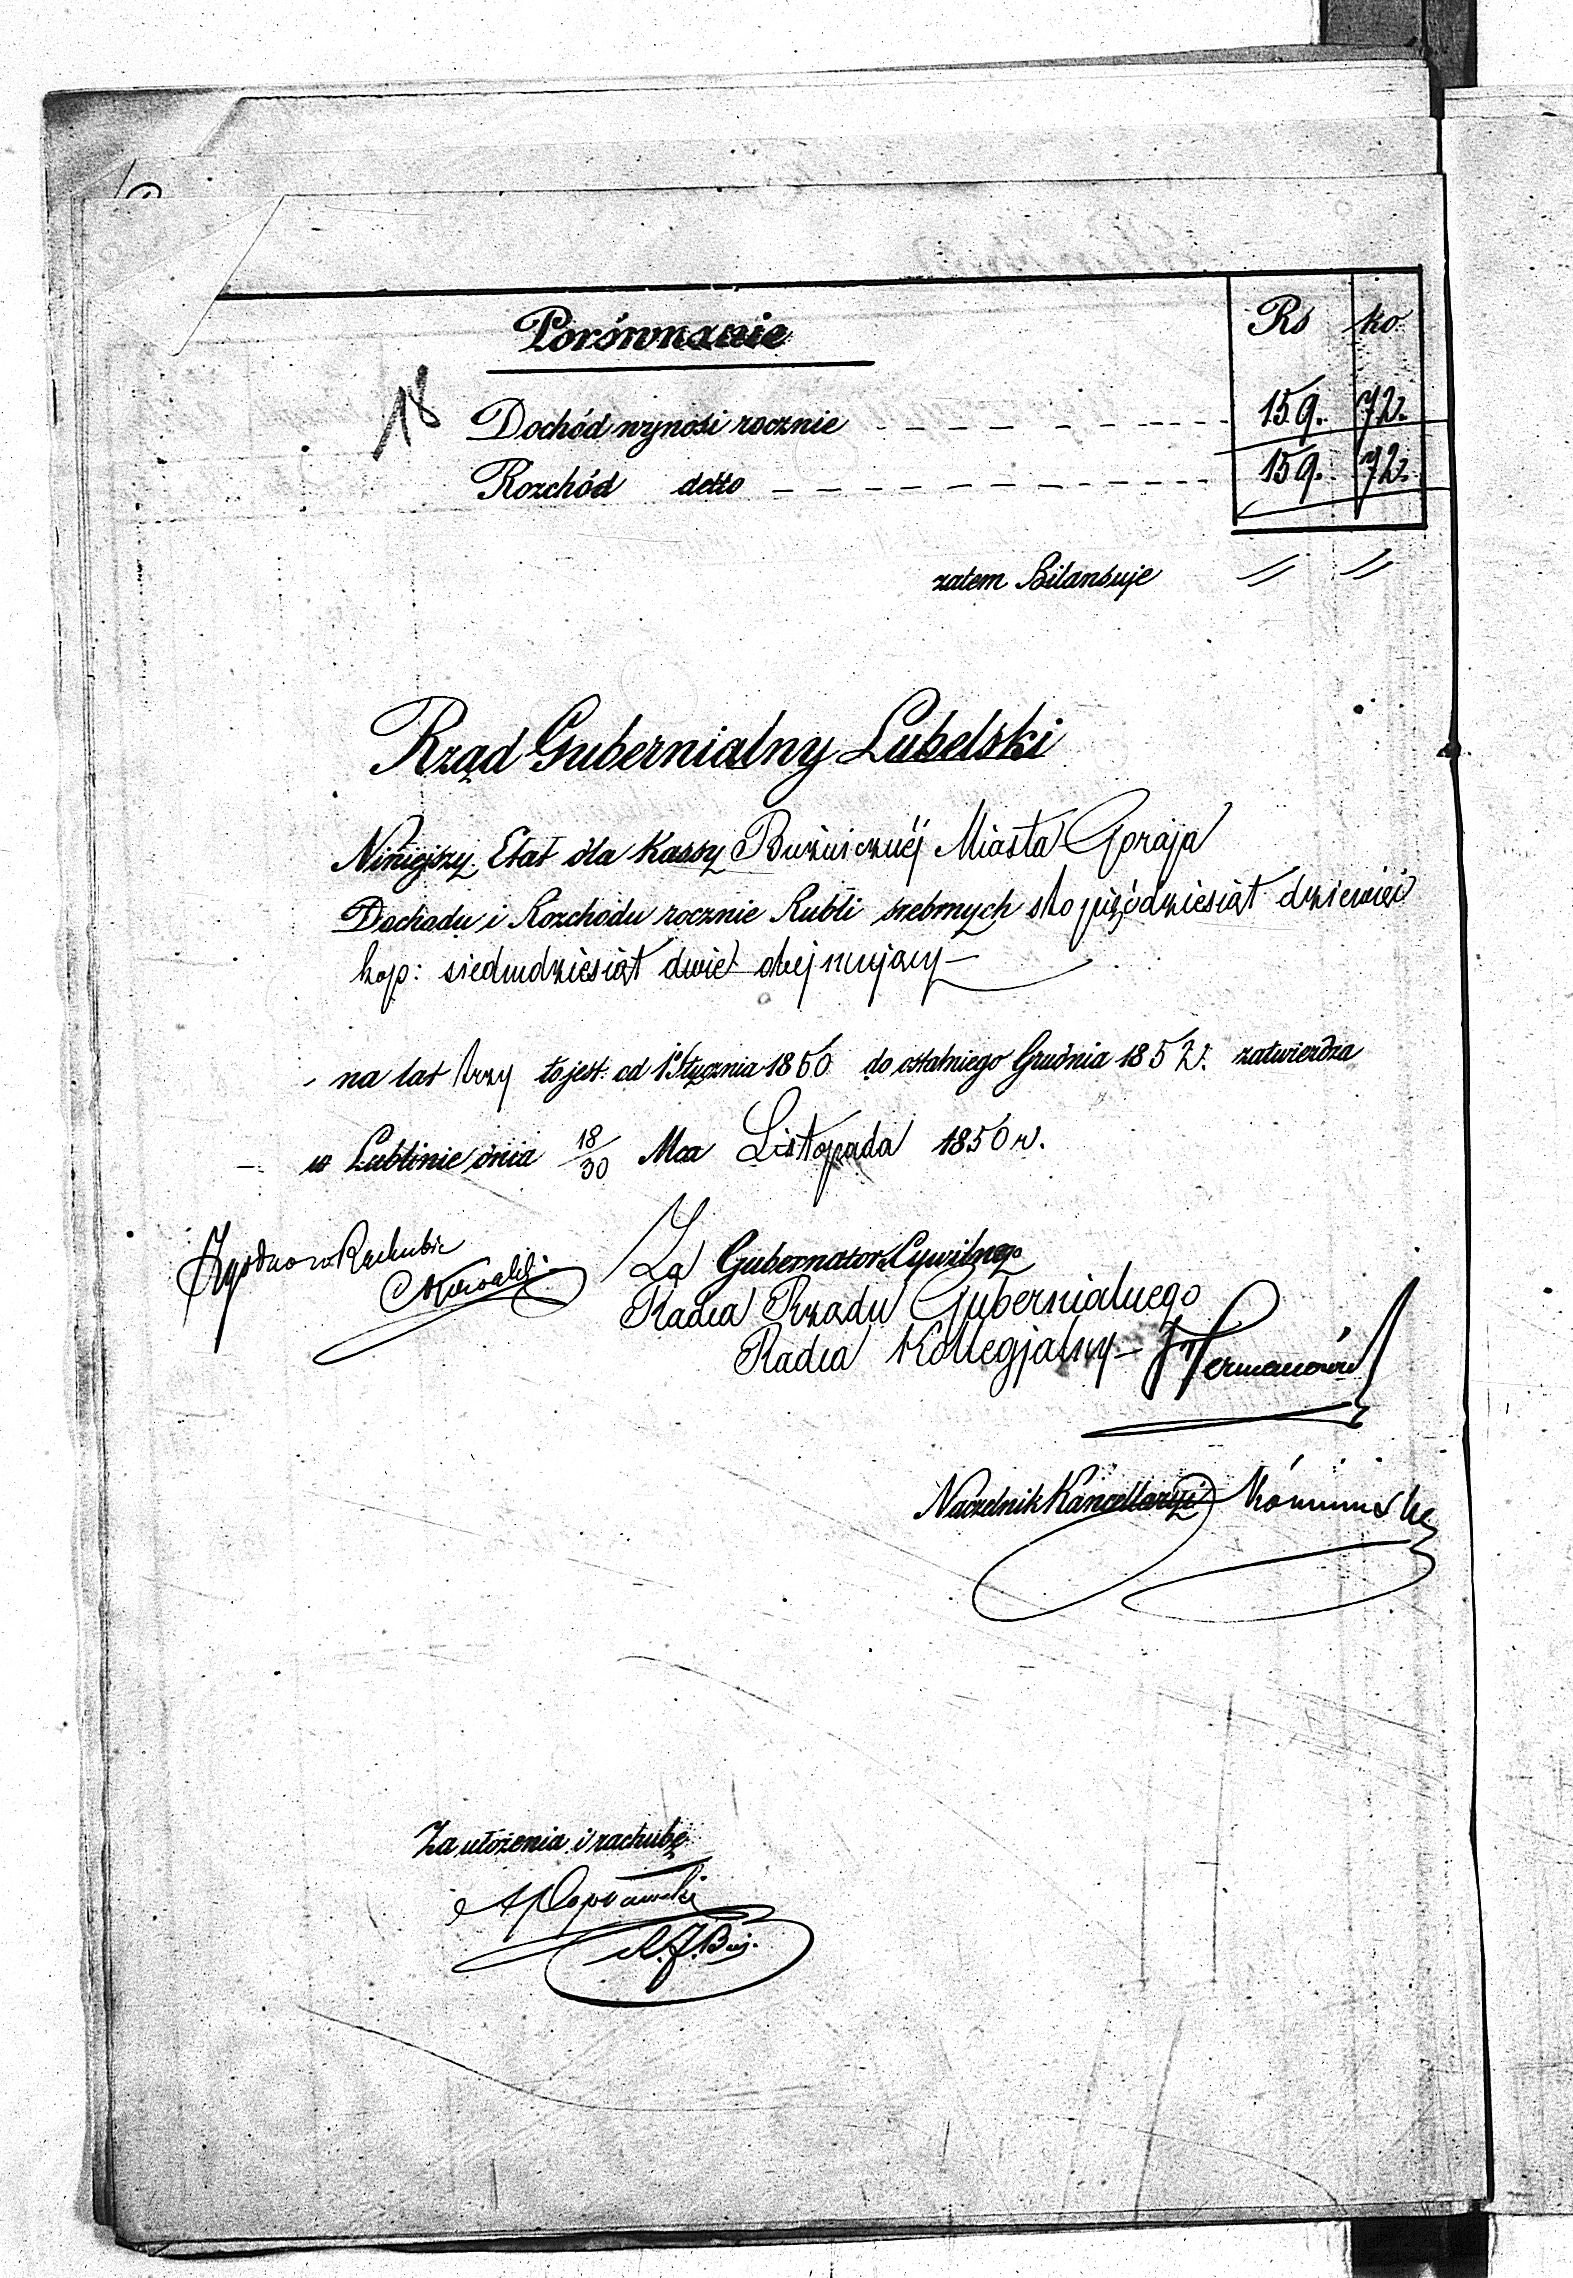 Porównanie
Rs ko.
18
Dochód wynosi rocznie 159. 72.
Rozchód detto 159. 72.
zatem Bilansuje
Rząd Gubernialny Lubelski
Niniejszy Etat dla Kassy Bużnicznéj Miasta Goraja
Dochodu i Rozchodu rocznie Rubli srebrnych sto pięćdziesiąt dziewięć
kop: siedmdziesiąt dwie obejmujący
na lat trzy to jest od 1 Stycznia 1850 do ostatniego Grudnia 1852 r. zatwierdza
w Lublinie dnia 18/30 Mca Listopada 1850 r.
Zgodno w Rachubie
Kowalski
Za Gubernatora Cywilnego
Radca Rządu Gubernialnego
Radca Kollegjalny
Naczelnik Kancellaryi
Za ułożenia i rachubę